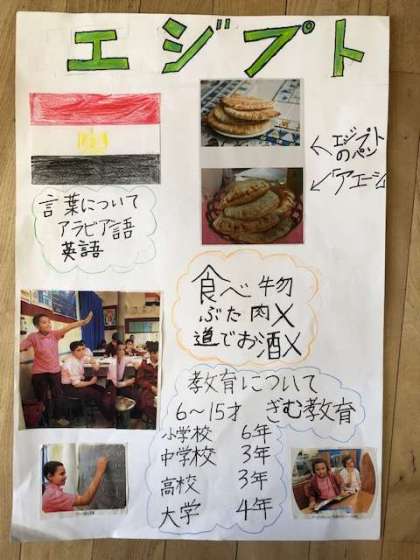 エジプト
エジプト
のパン
「アエーシ」
言葉について
アラビア語
英語
食べ物
ぶた肉×
道でお酒×
教育について
6〜15才 ぎむ教育
小学校 6年
中学校 3年
高校 3年
大学 4年